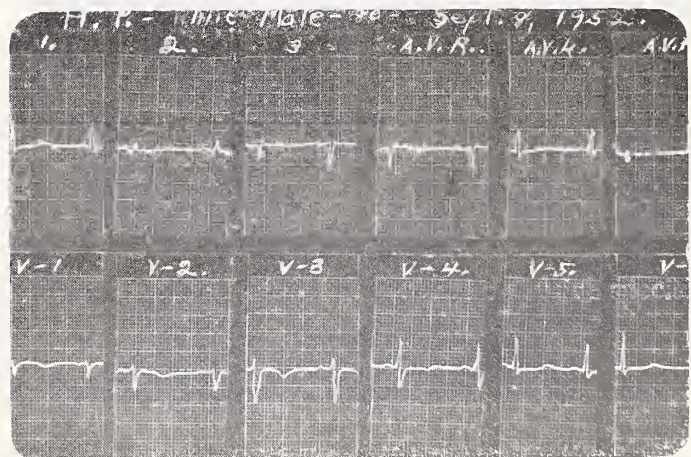 H. P. - Male - Sept. 9, 1952.
1. 2. 3 A.V.R. A.V.L. A.V.F
V-1 V-2. V-3 V-4. V-5. V-